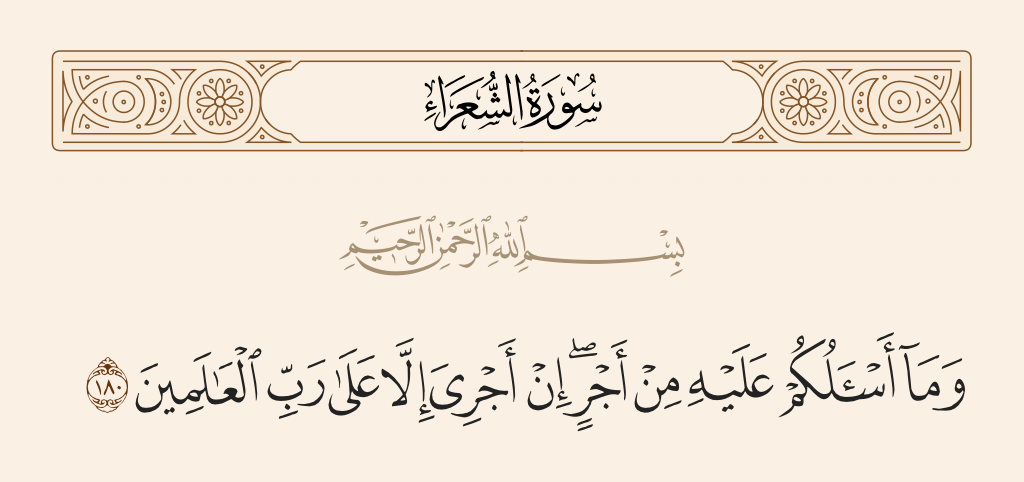 سُورَةُ الشُّعَرَاءِ
بِسْمِ ٱللَّهِ ٱلرَّحْمَٰنِ ٱلرَّحِيمِ
وَمَآ أَسْـَٔلُكُمْ عَلَيْهِ مِنْ أَجْرٍ ۖ إِنْ أَجْرِىَ إِلَّا عَلَىٰ رَبِّ ٱلْعَـٰلَمِينَ ١٨٠